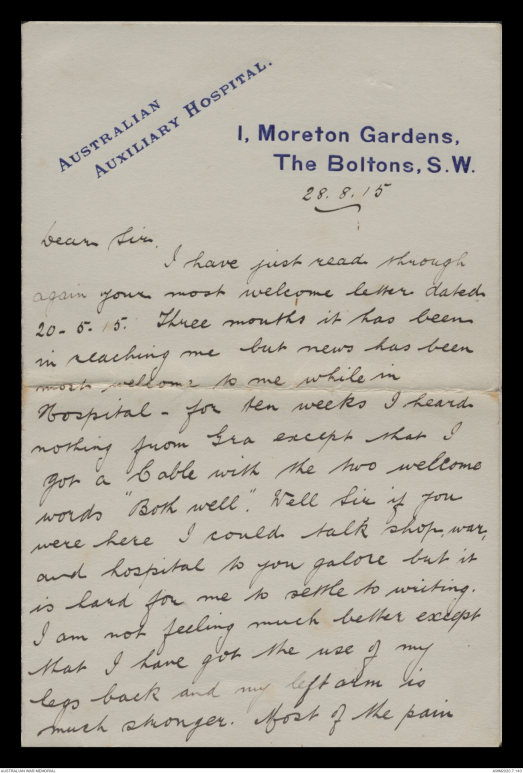 AUSTRALIAN
AUXILIARY HOSPITAL.
1, Moreton Gardens,
The Boltons, S.W.
28.8.15
Dear Sir,
I have just read through
again your most welcome letter dated
20-5-15. Three months it has been
in reaching me but news has been
most welcome to me while in
Hospital - for ten weeks I heard
nothing from Gra except that I
got a Cable with the two welcome
words "Both well". Well Sir if you
were here I could talk shop, war,
and hospital to you galore but it
is hard for me to settle to writing.
I am not feeling much better except
that I have got the use of my
legs back and my left arm is
much stronger. Most of the pain
AUSTRALIAN WAR MEMORIAL